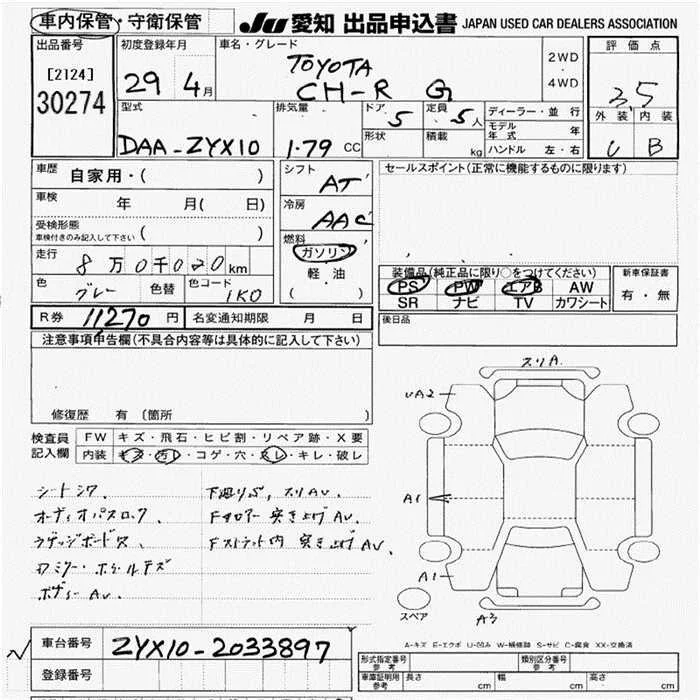 車内保管・守衛保管
JU 愛知 出品申込書 JAPAN USED CAR DEALERS ASSOCIATION
出品番号
[2124]
30274
初度登録年月
29 4月
車名・グレード
TOYOTA
CH-R G
2WD
・
4WD
評価点
3.5
外装 内装
B
型式
DAA-ZYX10
排気量
1.79 CC
ドア
5
形状
定員
5人
積載
kg
ディーラー・並行
モデル年式 年
ハンドル 左・右
車歴 自家用・( )
車検 年 月( 日)
受検形態
車検付きのみ記入して下さい ( )
走行 8万0千020km
色 グレー 色替 色コード 1K0
シフト
AT
冷房
AAC
燃料
ガソリン
軽・油
( )
セールスポイント(正常に機能するものに限ります)
装備品(純正品に限り○をつけてください)
PS PW エアB AW
SR ナビ TV カワシート
新車保証書
有・無
R券 11270円 名変通知期限 月 日
後日品
注意事項申告欄(不具合内容等は具体的に記入して下さい)
修復歴 有 〔箇所 〕
検査員記入欄
FW キズ・飛石・ヒビ割・リペア跡・X要
内装 キズ・汚レ・コゲ・穴・スレ・キレ・破レ
シートシワ、
オーディオパスロック、
ラゲッジボードス、
ボディーAU、
下廻りサビ、スリAU、
Fフロアー突き上げAU、
Fストラット内 突き上げAU、
スリA
UA2
A1
A1
A3
スペア
A-キズ E-エクボ U-凹み W-補修跡 S-サビ C-腐食 XX-交換済
車台番号 ZYX10-2033897
登録番号
形式指定番号
参考
類別区分番号
参考
車庫証明用
参考
長さ cm 幅 cm 高さ cm